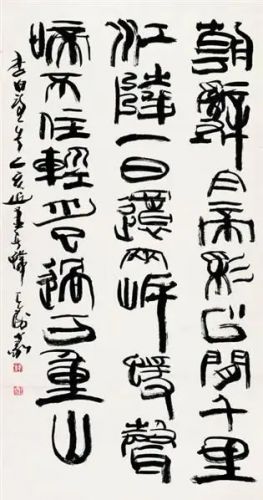 朝辭白帝彩云間千里
江陵一日還兩岸猨聲
啼不住輕舟已過万重山
李白詩